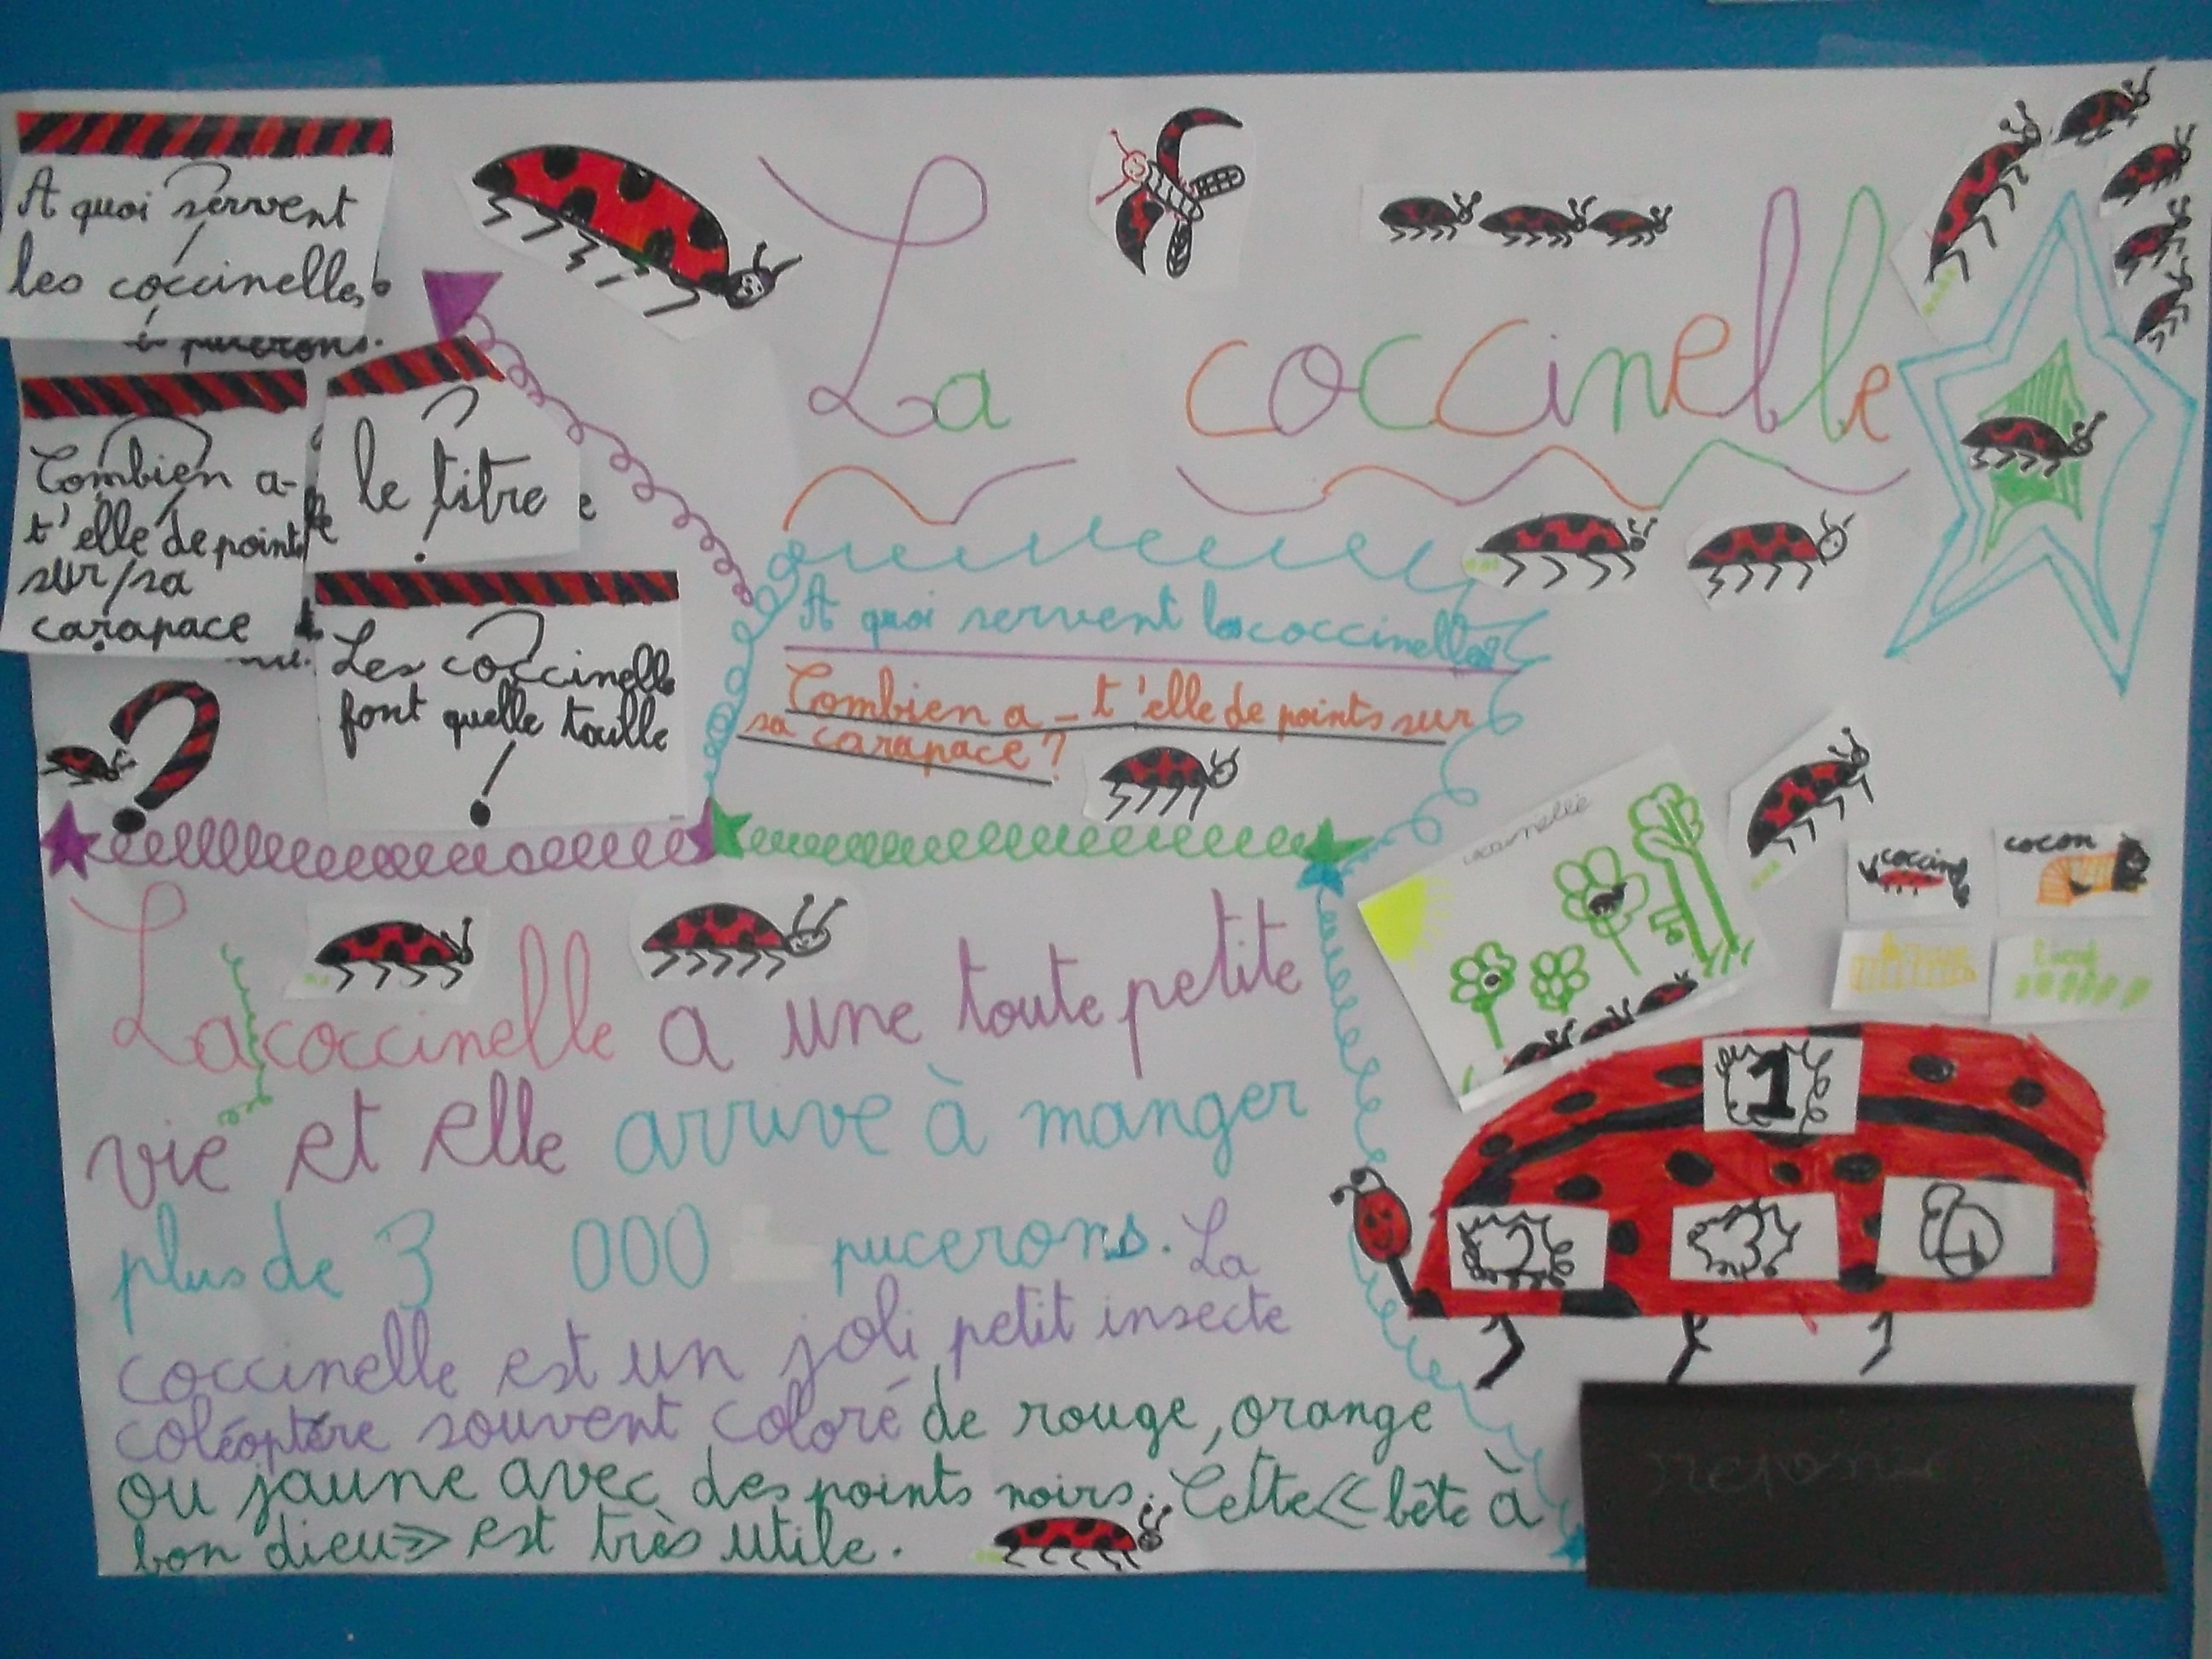 La coccinelle
A quoi servent
les coccinelles
pucerons.
Combien a-
t'elle de points
sur sa
carapace
?
le titre
?
Les coccinelle
font quelle taille
?
?
A quoi servent les coccinelles?
Combien a-t'elle de points sur
sa carapace?
La coccinelle a une toute petite
vie et elle arrive à manger
plus de 3 000 pucerons. La
coccinelle est un joli petit insecte
coléoptère souvent coloré de rouge, orange
ou jaune avec des points noirs. Cette << bête à
bon dieu >> est très utile.
coccinelle
cocon
1
2
3
4